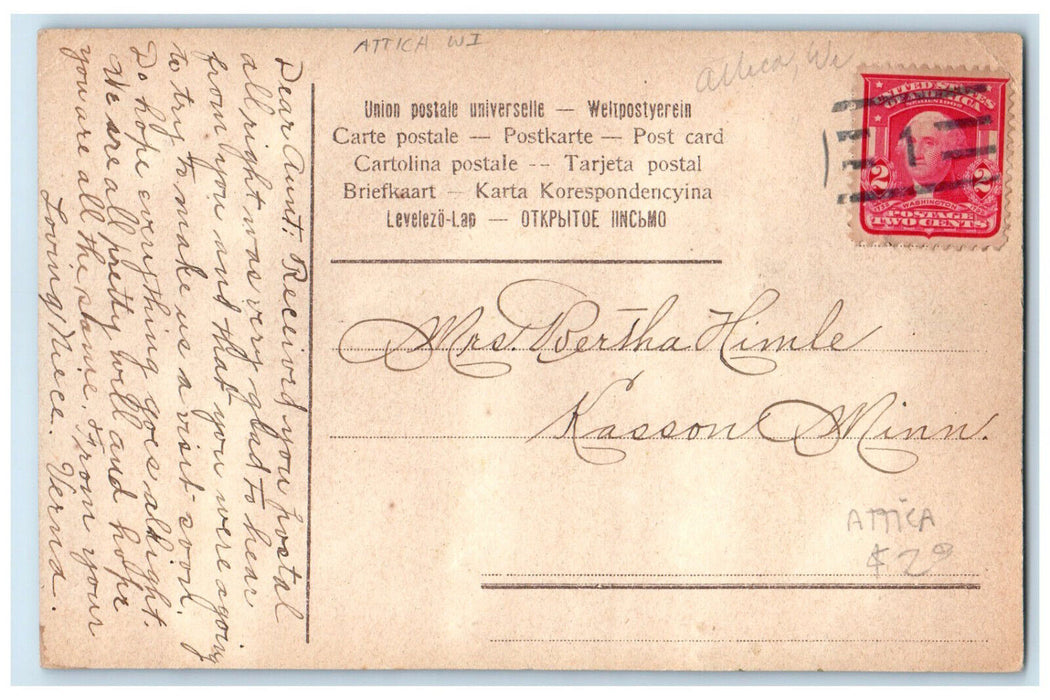 ATTICA WI
Attica, Wi
Union postale universelle — Weltpostverein
Carte postale — Postkarte — Post card
Cartolina postale -- Tarjeta postal
Briefkaart — Karta Korespondencyina
Levelező-Lap — ОТКРЫТОЕ ПИСЬМО
UNITED STATES
OF AMERICA
SERIES 1902
1
2
2
WASHINGTON
POSTAGE
TWO CENTS
Dear Aunt. Received you postal
all right was very glad to hear
from you and that you were agoing
to try to make us a visit soon.
Do hope everything goes alright.
We are all pretty well and hope
you are all the same. From your
Loving Niece. Verna.
Mrs. Bertha Himle
Kasson Minn.
ATTICA